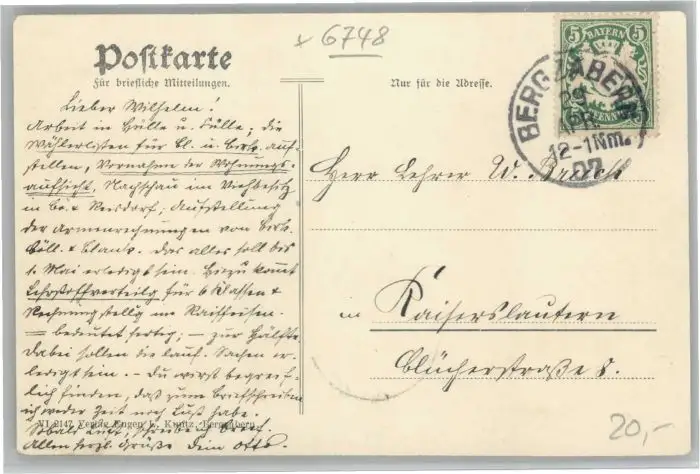 x 6748
Postkarte
Für briefliche Mitteilungen.
Nur für die Adresse.
5 BAYERN 5
PFENNIG
BERGZABERN
12-1Nm.
07
Lieber Wilhelm!
Arbeit in Hülle u. Fülle; die
Wählerlisten für Bl. u. Birk. auf-
stellen, Vornahme der Wohnungs-
aufsicht, Nachschau im Viehbesitz
in Bö. & Reisdorf; Aufstellung
der Armenrechnungen von Birk.
Böll. & Blank. Das alles soll bis
1. Mai erledigt sein. Hiezu kommt
Lehrstoffverteilg für 6 Klassen &
Rechnungstellg im Raiffeisen.
= bedeutet fertig; – zur Hälfte
Dabei sollen die lauf. Sachen er-
ledigt sein. – Du wirst begreif-
lich finden, daß zum Briefschreiben
ich weder Zeit noch Lust habe.
Sobald Luft, schreibe ich Brief.
Allen herzl. Grüße Dein Otto.
Herrn Lehrer W.
in Kaiserslautern
Blücherstraße 8.
VI 2147 Verlag Eugen L. Kuntz, Bergzabern.
20,-